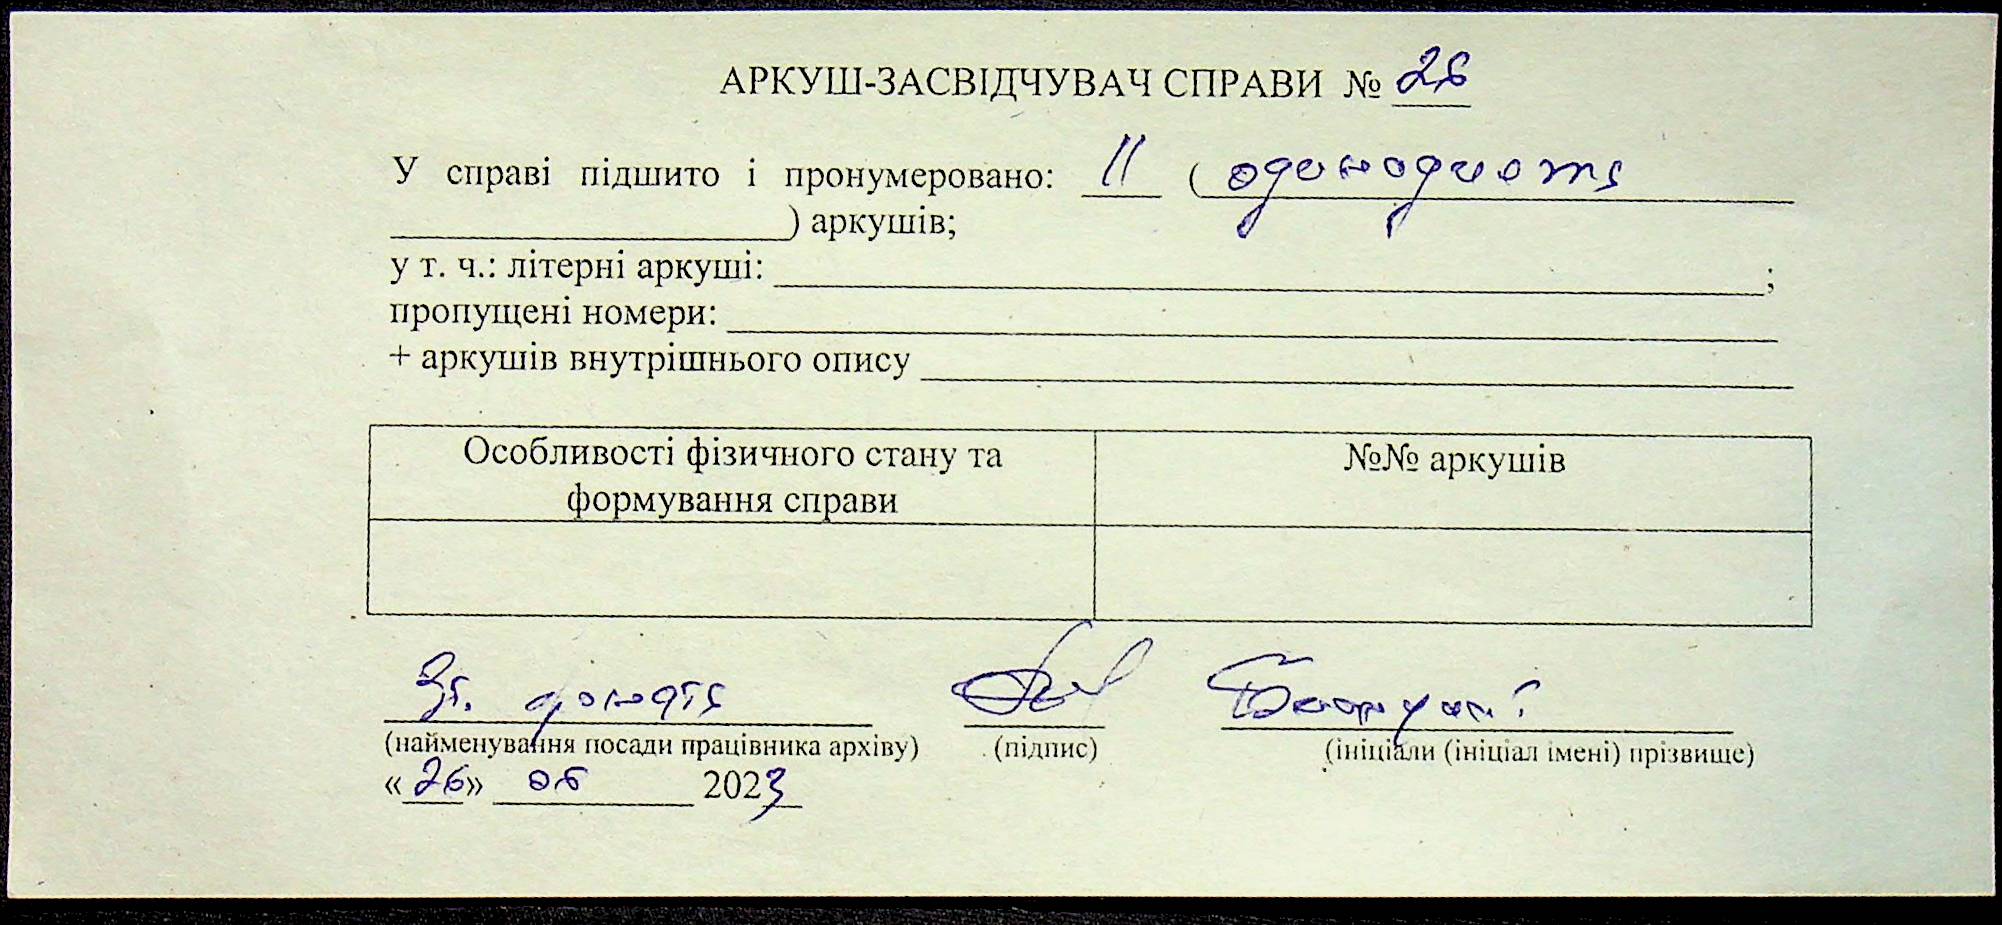 АРКУШ-ЗАСВІДЧУВАЧ СПРАВИ № 26
У справі підшито і пронумеровано: 11 ( одинадцять
) аркушів;
у т. ч.: літерні аркуші: ;
пропущені номери:
+ аркушів внутрішнього опису
Особливості фізичного стану та
формування справи
№№ аркушів
(найменування посади працівника архіву) (підпис) (ініціали (ініціал імені) прізвище)
«26» 06 2023